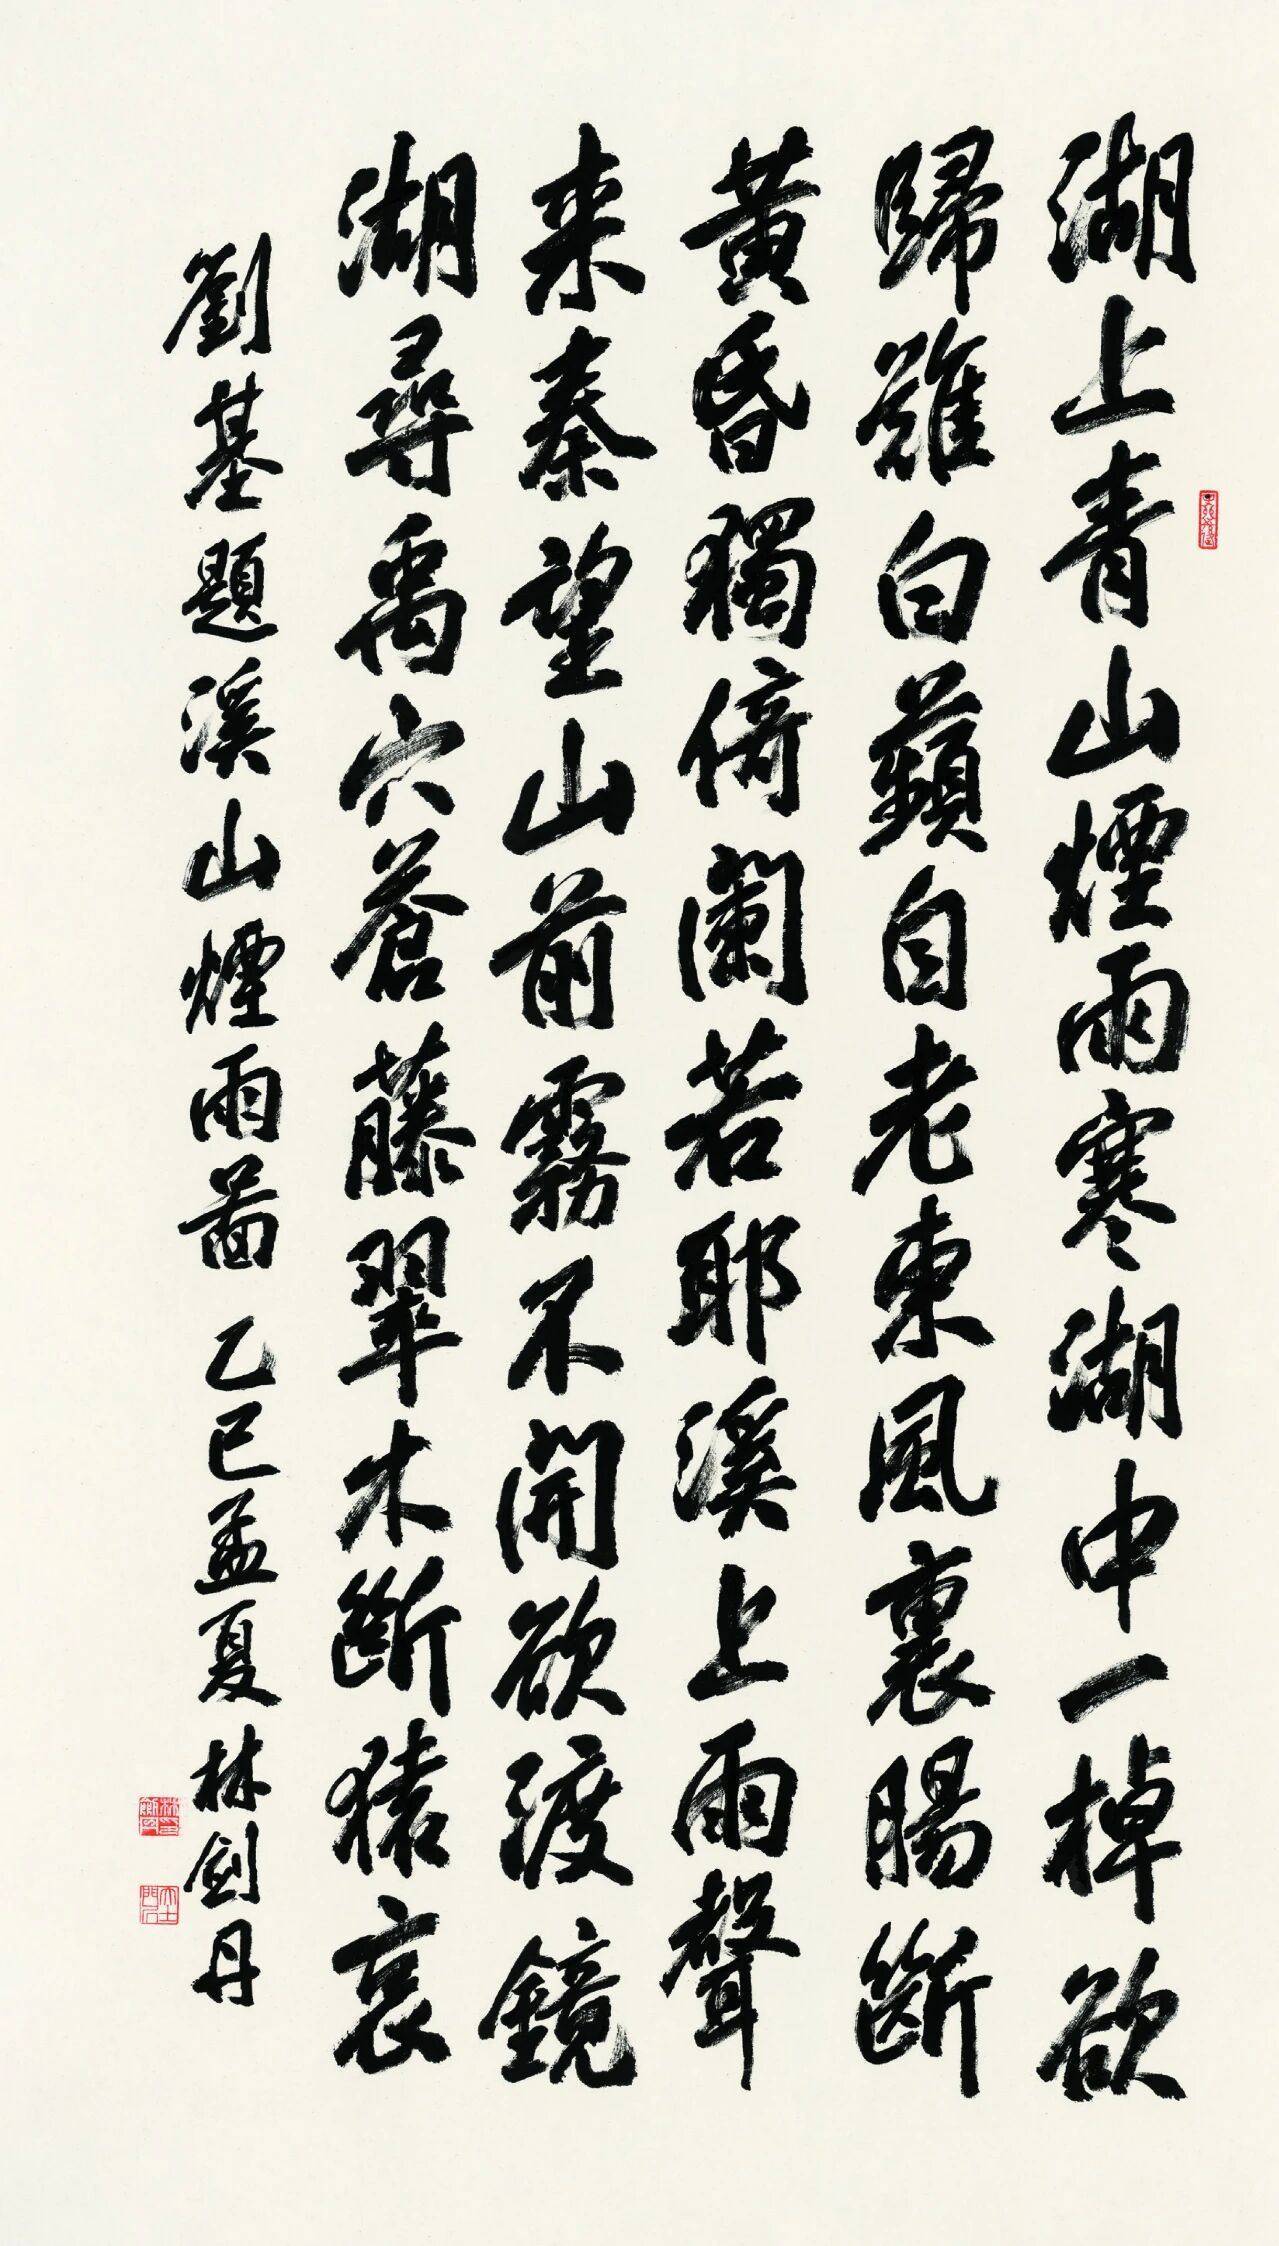 湖上青山煙雨寒湖中一棹欲
歸難白蘋自老東風裏腸斷
黃昏獨倚闌若耶溪上雨聲
來秦望山前霧不開欲渡鏡
湖尋禹穴蒼藤翠木斷猿哀
劉基題溪山煙雨圖 乙巳孟夏林劍丹